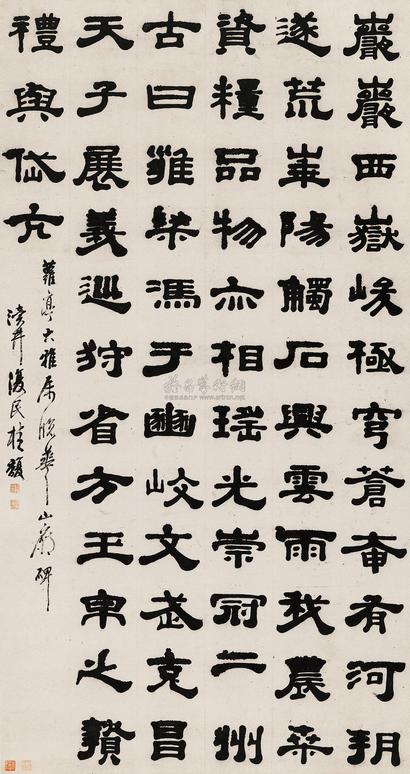 巖巖西嶽峻極穹蒼奄有河朔
遂荒崋陽觸石興雲雨我農桑
資糧品物亦相瑤光崇冠二州
古曰雍梁馮于豳岐文武克昌
天子展義巡狩省方玉帛之贄
禮與岱亢
大雅屬臨華山廟碑
瀆井復民桂馥